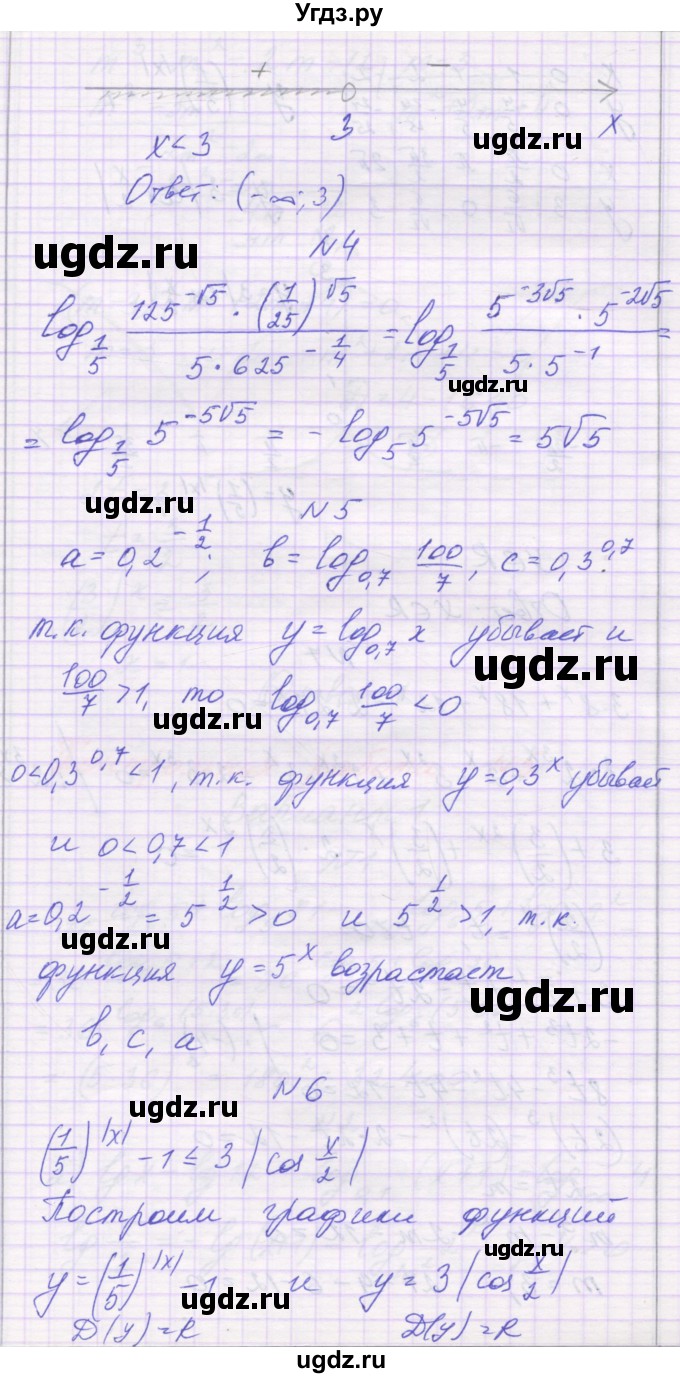 Угдз.ру
+ −
3 x
x < 3
Ответ: (-∞; 3)
ugdz.ru
ugdz.ru
N4
log_{1/5} (125^{-√5} · (1/25)^{√5}) / (5 · 625^{-1/4}) = log_{1/5} (5^{-3√5} · 5^{-2√5}) / (5 · 5^{-1}) =
ugdz.ru
= log_{1/5} 5^{-5√5} = - log_5 5^{-5√5} = 5√5
ugdz.ru
N5
a = 0,2^{-1/2}; b = log_{0,7} 100/7, c = 0,3^{0,7}.
т.к. функция y = log_{0,7} x убывает и
ugdz.ru
100/7 > 1, то log_{0,7} 100/7 < 0
ugdz.ru
0 < 0,3^{0,7} < 1, т.к. функция y = 0,3^x убывает
и 0 < 0,7 < 1
a = 0,2^{-1/2} = 5^{1/2} > 0 и 5^{1/2} > 1, т.к.
ugdz.ru
функция y = 5^x возрастает
ugdz.ru
b, c, a
N6
ugdz.ru
(1/5)^{|x|} - 1 ≤ 3 |cos x/2|
Построим графики функций
ugdz.ru
y = (1/5)^{|x|} - 1 и y = 3 |cos x/2|
ugdz.ru
D(y) = R D(y) = R
ugdz.ru